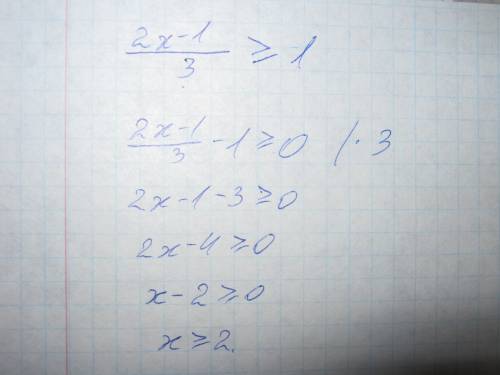 (2x-1)/3 ≥ 1
(2x-1)/3 - 1 ≥ 0 /·3
2x-1-3 ≥ 0
2x-4 ≥ 0
x-2 ≥ 0
x ≥ 2.